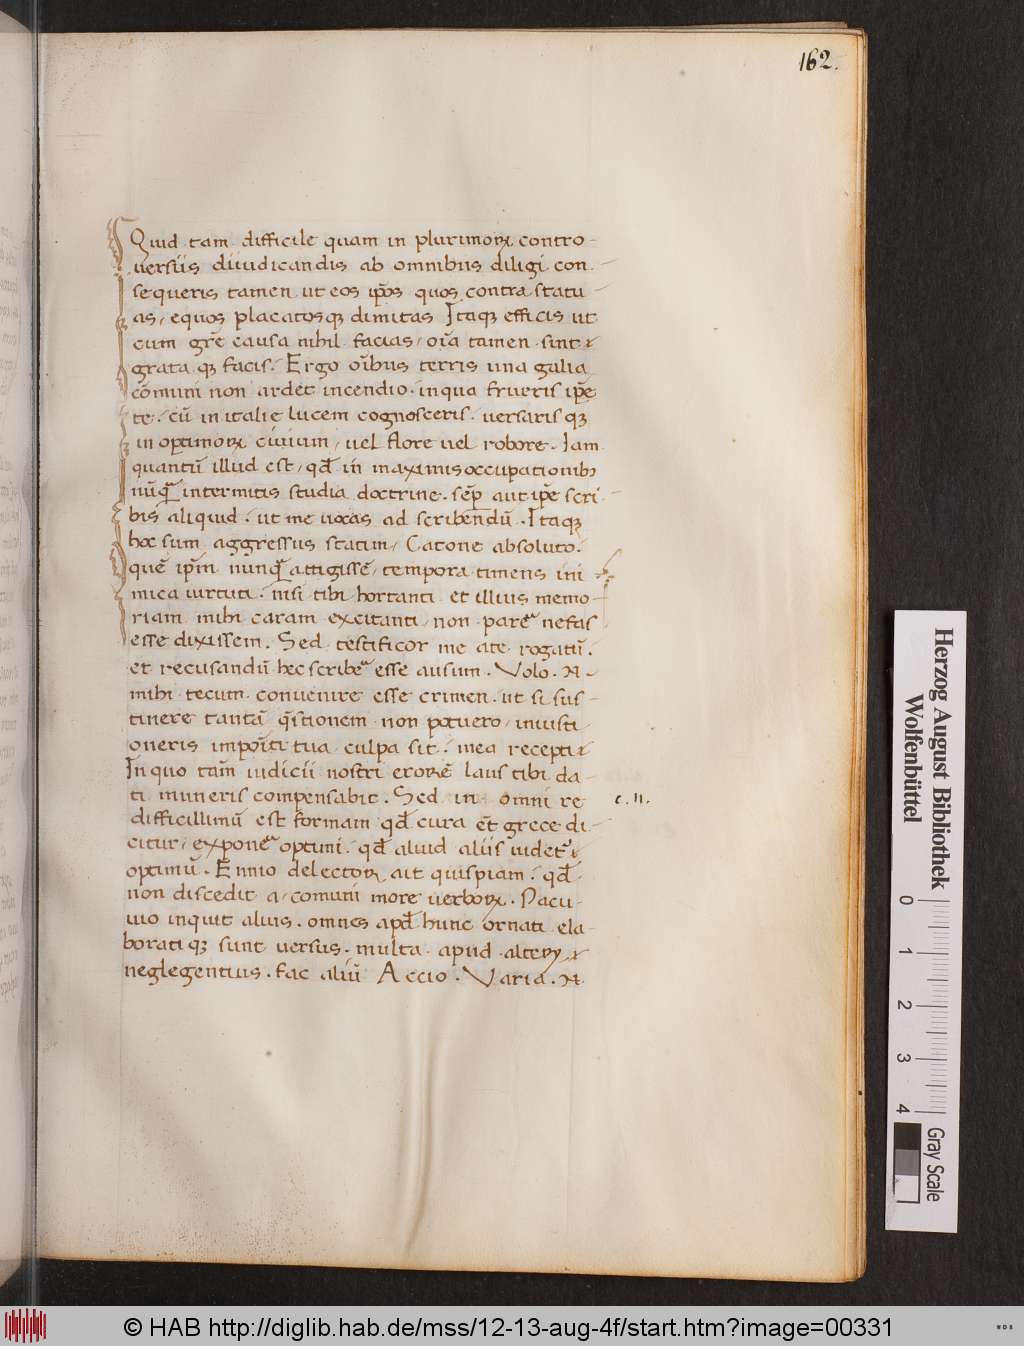 162.
Quid tam difficile quam in plurimoꝝ contro-
uersiis diiudicandis ab omnibus diligi con.
sequeris tamen ut eos ip̄os quos contra statu
as, equos placatosqꝫ dimitas Itaqꝫ efficis ut
cum gr̄e causa nihil facias, oīa tamen sint
grata qꝫ facis. Ergo oībus terris una galia
cōmuni non ardet incendio. inqua frueris ip̄e
te. cū in italie lucem cognosceris. uersaris qꝫ
in optimoꝝ ciuium, uel flore uel robore. Iam
quantū illud est, qđ in maximis occupationibꝫ
nūqꝫ intermitis studia doctrine. sēp aut ip̄e scri
bis aliquid. ut me uocas ad scribendū. Itaqꝫ
hoc sum aggressus statim, Catone absoluto.
quē ip̄m nunqꝫ attigissē, tempora timens ini
mica uirtuti. nisi tibi hortanti et illius memo
riam mihi caram excitanti, non parēe nefas
esse dixissem. Sed testificor me ate rogatū.
et recusandū hec scribēe esse ausum. Volo. N
mihi tecum conuenire esse crimen. ut si sus-
tinere tantā q̄stionem non potuero, iniusti
oneris impoīti tua culpa sit. mea recepti
In quo tam̄ iudicii nostri erorē laus tibi da-
ti muneris compensabit. Sed in omni re
c. n.
difficillimū est formam qđ cura et̄ grece di-
citur, exponēe optimi. qđ aliud aliis uidet᷑
optimū. Ennio delector, ait quispiam. qđ
non discedit a, comuni more uerboꝝ. Pacu-
uio inquit alius. omnes apđ hunc ornati ela-
borati qꝫ sunt uersus. multa apud alteꝝ
neglegentius. fac aliū Accio. Varia. N
Herzog August Bibliothek
Wolfenbüttel
0 1 2 3 4
Gray Scale
© HAB http://diglib.hab.de/mss/12-13-aug-4f/start.htm?image=00331